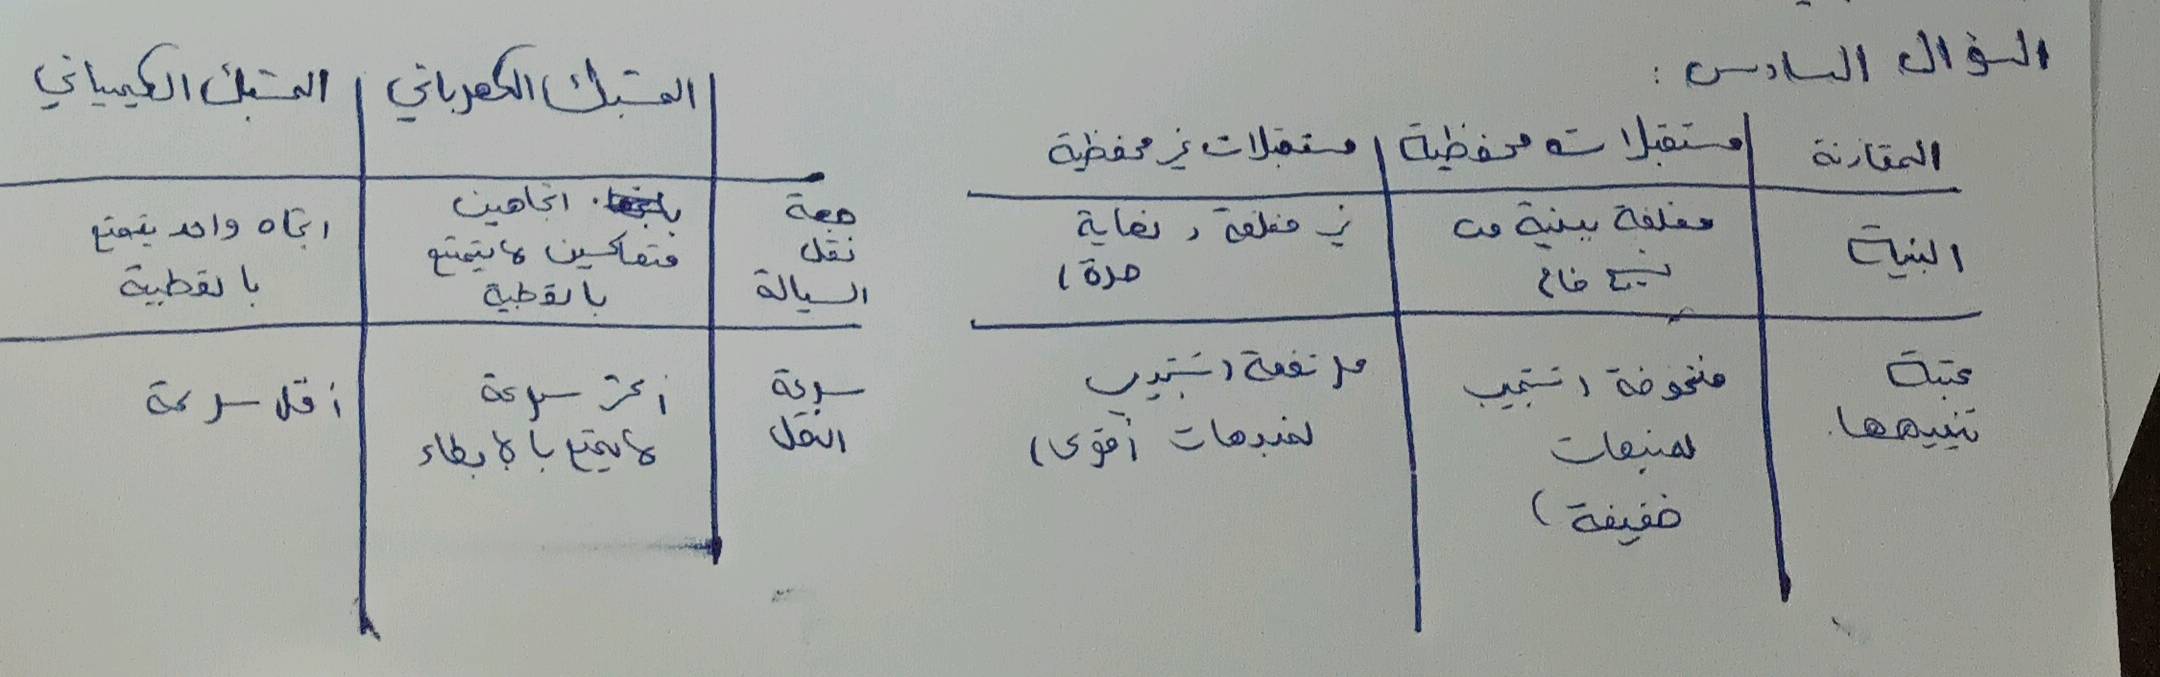 السؤال السادس :
المقارنة | مستقبلات محفظية | مستقبلات غير محفظية
البنية | مغلفة ببنية من | غير مغلفة ( نهاية
نسيج ضام | حرة )
عتبة | منخفضة ( تستجيب | مرتفعة ( تستجيب
تنبيهها . | لمنبهات | لمنبهات أقوى )
خفيفة )
المشبك الكهربائي | المشبك الكيميائي
جهة | باتجاهين | اتجاه واحد يتمتع
نقل | متعاكسين لا يتمتع | بالقطبية
السيالة | بالقطبية
سرعة | أكثر سرعة | أقل سرعة
النقل | لا يتمتع بالإبطاء